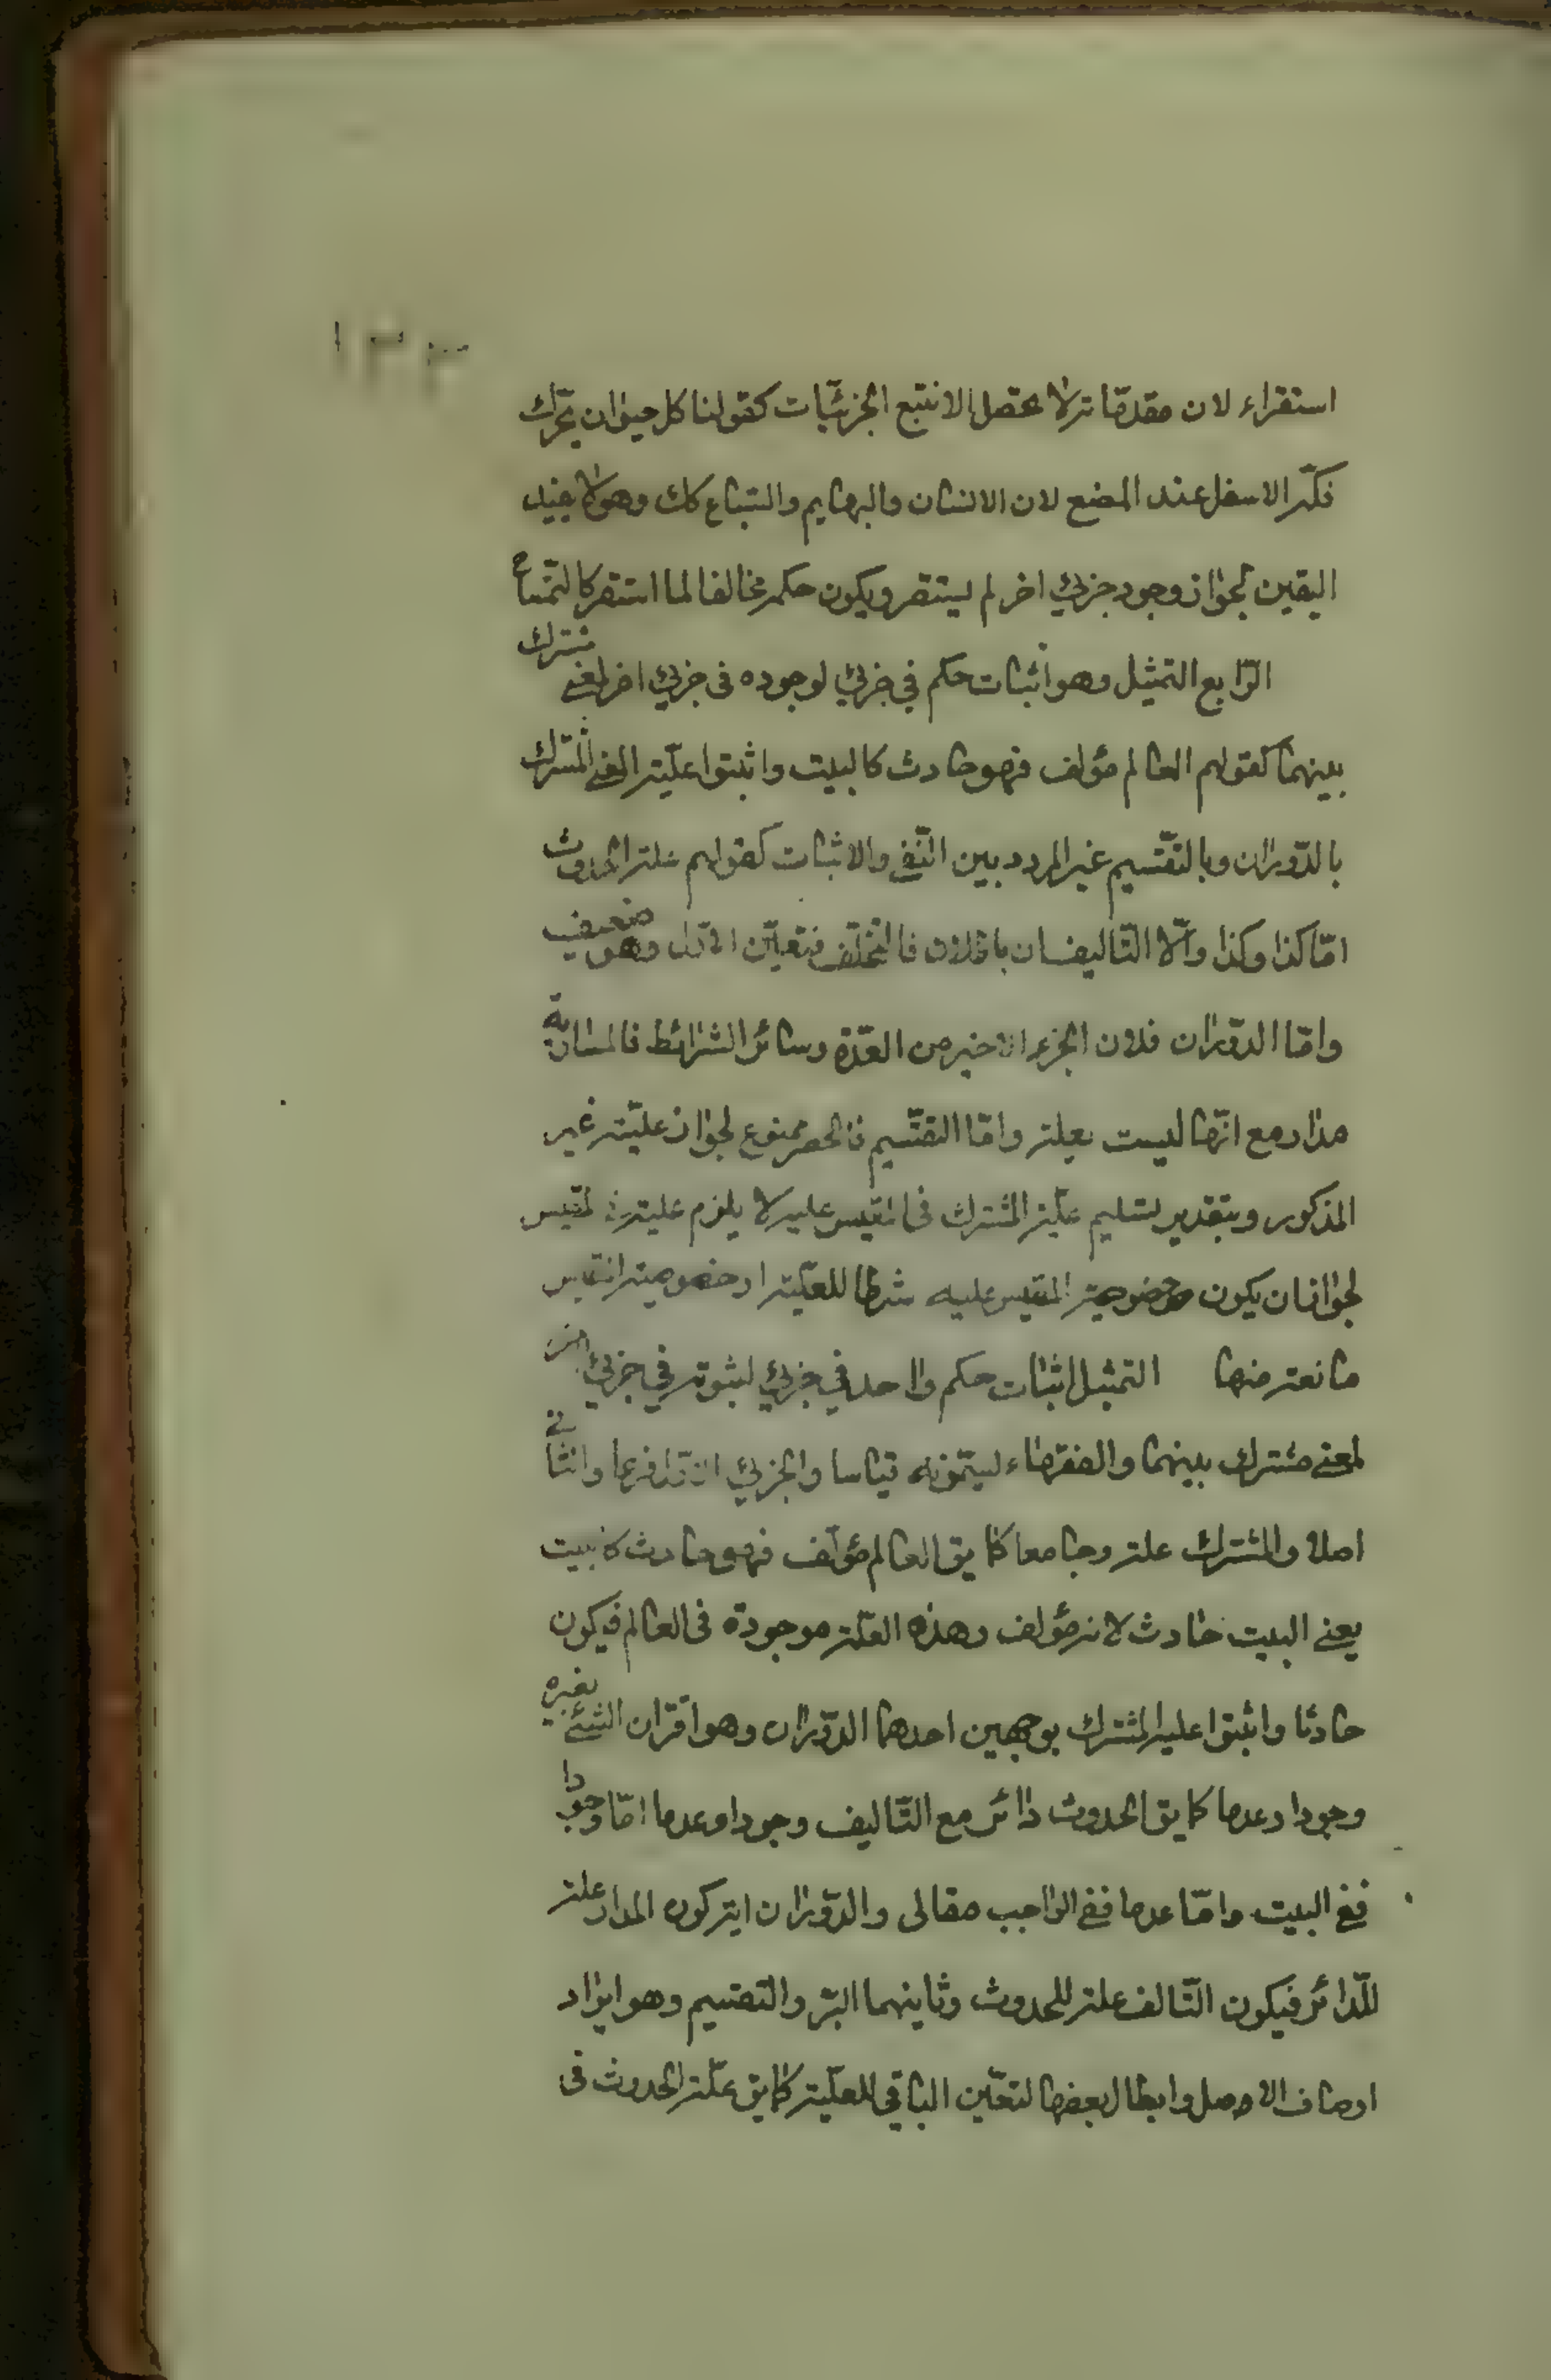 ١٣٣
استقراء لان مقدماته لا تحصل الا بتتبع الجزئيّات كقولنا كل حيوان يحرّك
فكّه الاسفل عند المضغ لان الانسان والبهايم والسّباع كك وهو لا يفيد
اليقين لجواز وجود جزئي اخر لم يستقر ويكون حكمه مخالفا لما استقر كالتمساح
الرّابع التمثيل وهو اثبات حكم في جزئي لوجوده في جزئي اخر لمعنى مشترك
بينهما كقولهم العالم مؤلف فهو حادث كالبيت واثبتوا علّية المعنى المشترك
بالدّوران وبالتقسيم غير المردد بين النّفي والاثبات كقولهم علة الحدوث
امّا كذا وكذا والّا التّاليف بالتخلّف فتعيّن الاوّل وهو ضعيف
وامّا الدّوران فلان الجزء الاخير من العلّة وسائر الشرائط المساوية
مدار مع انّها ليست بعلة وامّا التقسيم فالحصر ممنوع لجواز علّية غير
المذكور وبتقدير تسليم علّية المشترك في المقيس عليه لا يلزم علّيته في المقيس
لجواز ان يكون خصوصية المقيس عليه شرطا للعلّية او خصوصية المقيس
مانعة منها التمثيل اثبات حكم واحد في جزئي لثبوته في جزئي اخر
لمعنى مشترك بينهما والفقهاء يسمّونه قياسا والجزئي الاوّل فرعا والثاني
اصلا والمشترك علة وجامعا كما يق العالم مؤلّف فهو حادث كالبيت
يعني البيت حادث لانه مؤلف وهذه العلّة موجودة في العالم فيكون
حادثا واثبتوا علية المشترك بوجهين احدهما الدّوران وهو اقتران الشئ بغيره
وجودا وعدما كما يق الحدوث دائر مع التّاليف وجودا وعدما امّا وجودا
ففي البيت وامّا عدما ففي الواجب تعالى والدّوران اية كون المدار علة
للدّائر فيكون التّالف علة للحدوث وثانيهما السّبر والتقسيم وهو ايراد
اوصاف الاصل وابطال بعضها لتعيّن الباقي للعلّية كما يق علّة الحدوث في